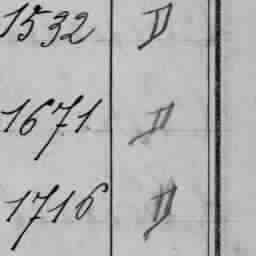 1532 II
1671 II
1716 II